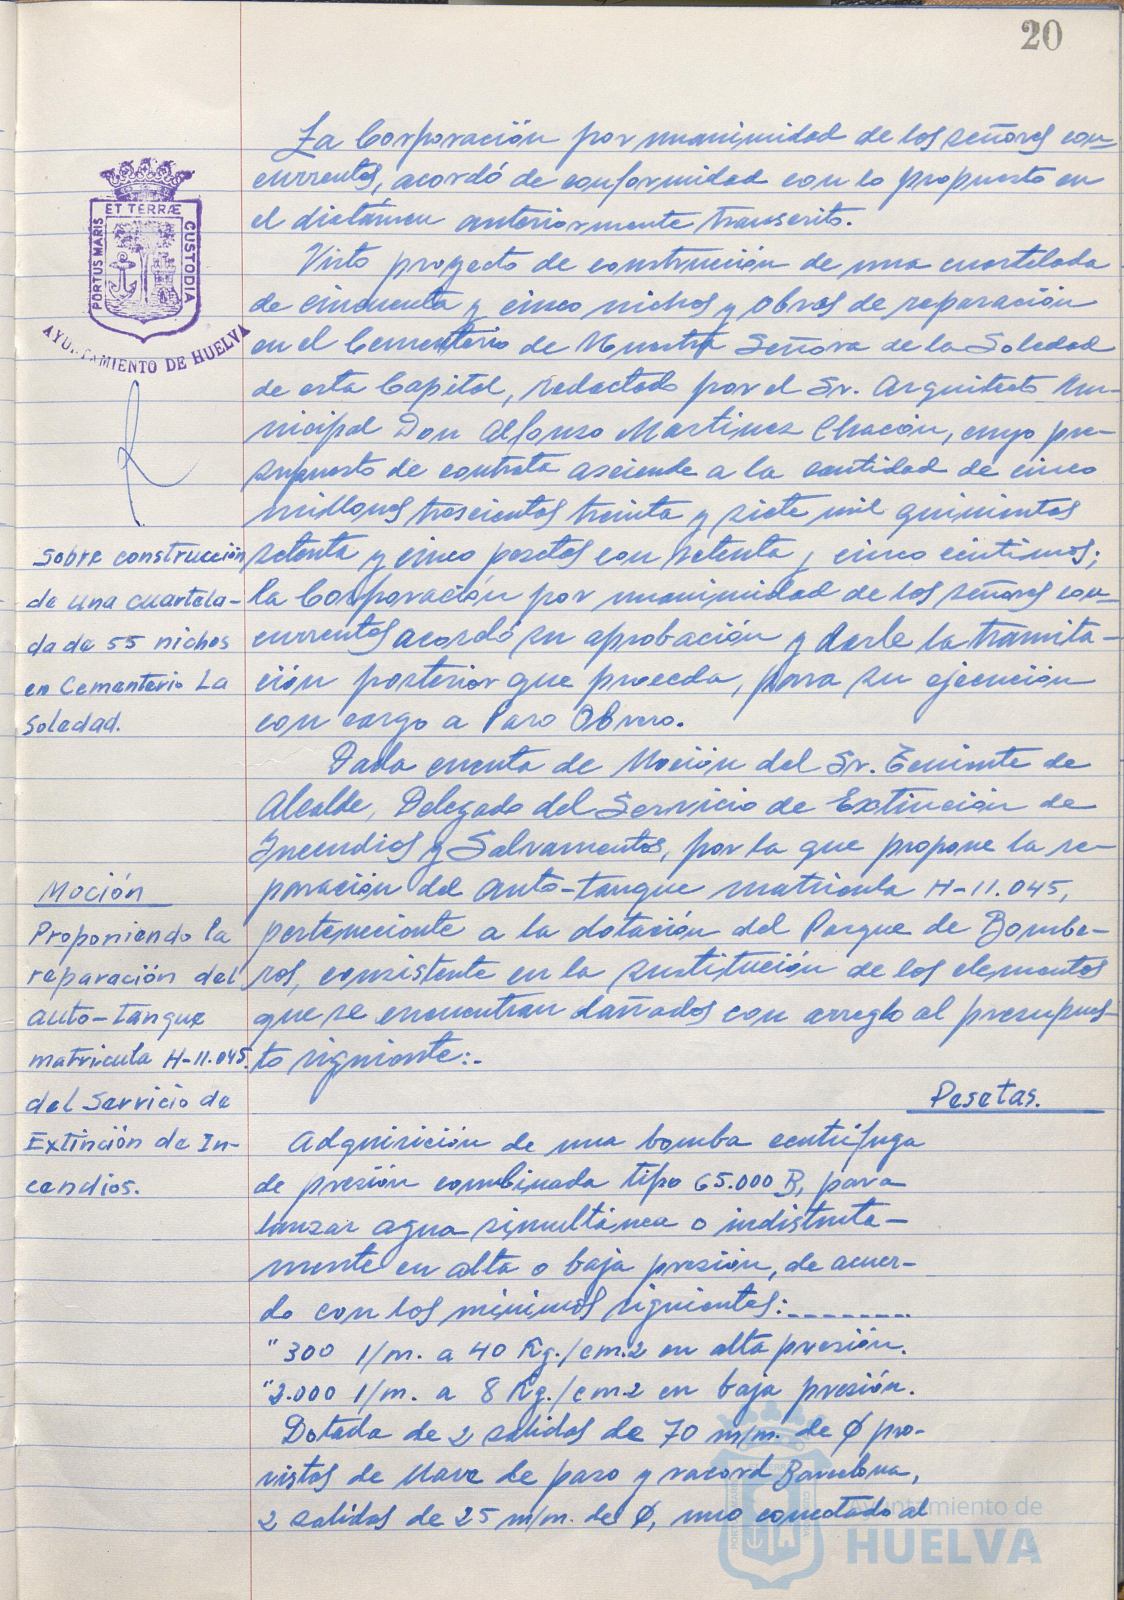 20
La Corporación por unanimidad de los señores con-
currentes, acordó de conformidad con lo propuesto en
el dictámen anteriormente transcrito.
ET TERRÆ
PORTUS MARIS
CUSTODIA
AYUNTAMIENTO DE HUELVA
Visto proyecto de construcción de una cuartelada
de cincuenta y cinco nichos y obras de reparación
en el Cementerio de Nuestra Señora de la Soledad
de esta Capital, redactado por el Sr. Arquitecto Mu-
nicipal Don Alfonso Martinez Chacón, cuyo pre-
supuesto de contrata asciende a la cantidad de cinco
millones trescientas treinta y siete mil quinientas
setenta y cinco pesetas con setenta y cinco centimos;
la Corporación por unanimidad de los señores con-
currentes acordó su aprobación y darle la tramita-
ción posterior que proceda, para su ejecución
con cargo a Paro Obrero.
Sobre construcción
de una cuartela-
da de 55 nichos
en Cementerio La
Soledad.
Dada cuenta de Moción del Sr. Teniente de
Alcalde, Delegado del Servicio de Extinción de
Incendios y Salvamentos, por la que propone la re-
paración del auto-tanque matricula H-11.045,
perteneciente a la dotación del Parque de Bombe-
ros, consistente en la sustitución de los elementos
que se encuentran dañados con arreglo al presupues-
to siguiente:.-
Moción
Proponiendo la
reparación del
auto-tanque
matricula H-11.045.
del Servicio de
Extinción de In-
cendios.
Pesetas.
Adquisición de una bomba centrífuga
de presión combinada tipo 65.000 B, para
lanzar agua simultánea o indistinta-
mente en alta o baja presión, de acuer-
do con los mínimos siguientes:--------
" 300 l/m. a 40 Kg./cm.2 en alta presión.
"2.000 l/m. a 8 Kg./cm2 en baja presión.
Dotada de 2 salidas de 70 m/m. de Ø pro-
vistas de llave de paso y racord Barcelona,
2 salidas de 25 m/m. de Ø, uno conectado al
Ayuntamiento de
HUELVA